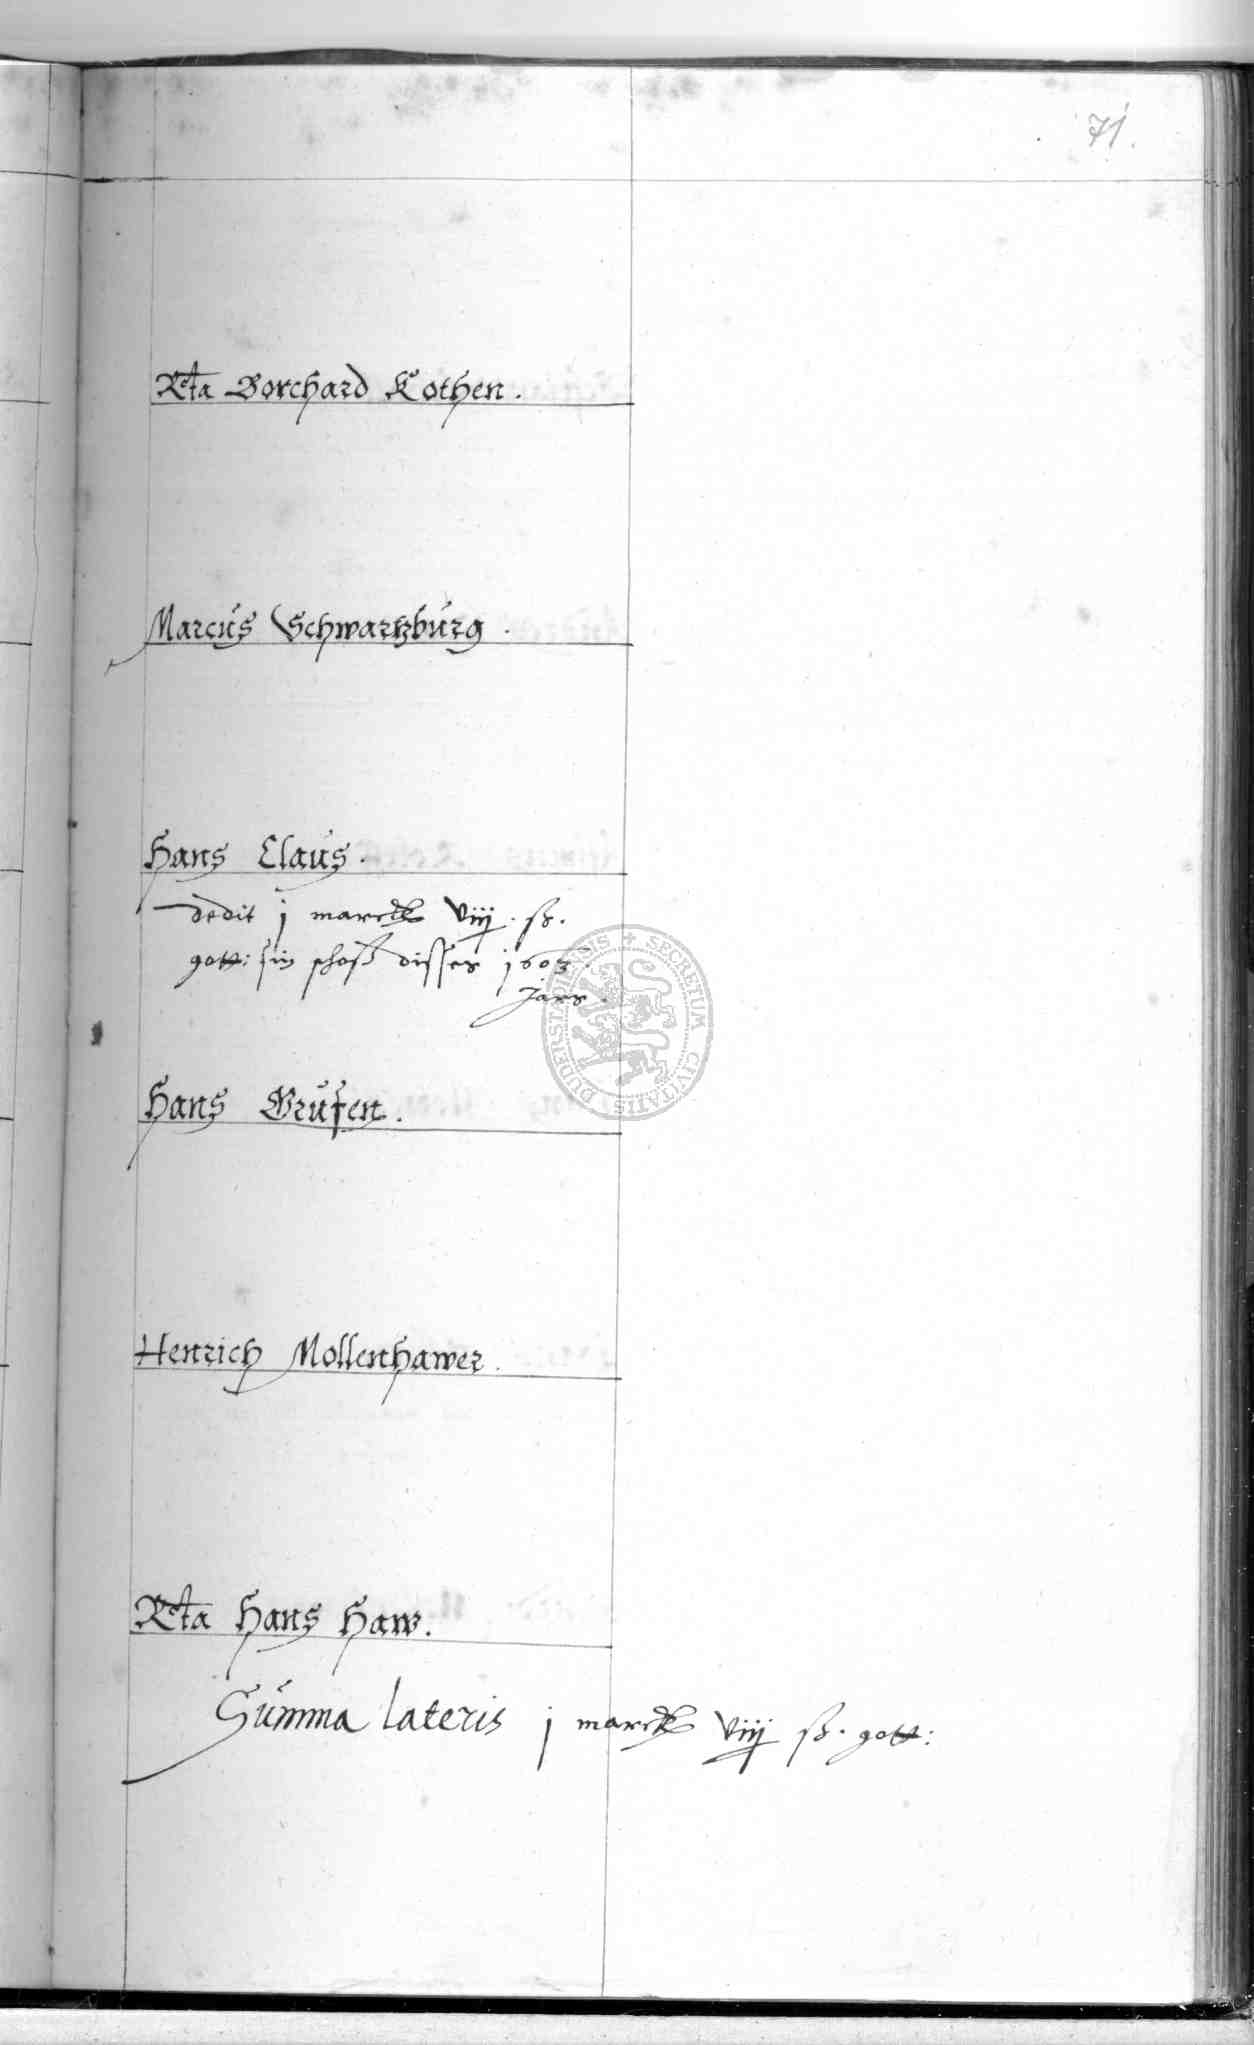 71.
Rcta Borchard Kothen.
Marcus Schwartzburg.
Hans Claus.
dedit j marck viij ß.
gott: sin schoß disses 1603
Jars.
SECRETUM CIVITATIS DUDERSTADIENSIS
Hans Grusen.
Henrich Mollenhawer.
Rcta Hans Haw.
Summa lateris j marck viij ß. gott: